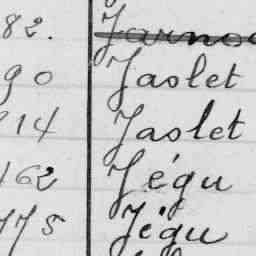 82. Jarno
90 Jaslet
214 Jaslet
462 Jégu
475 Jégu